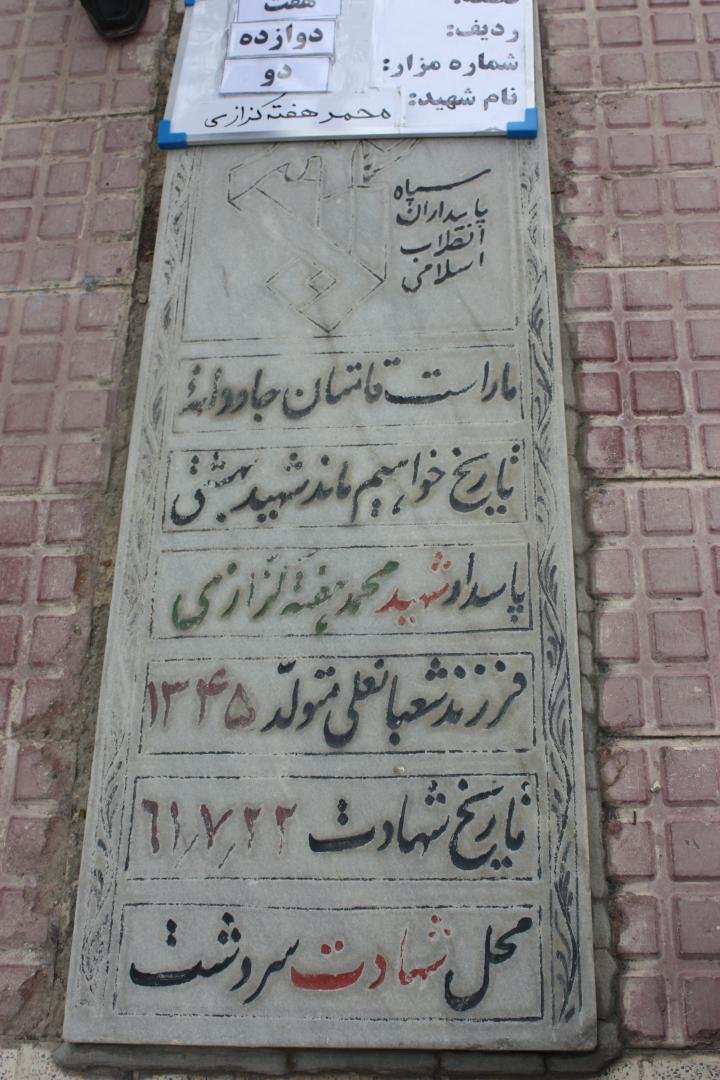 هفت
ردیف: دوازده
شماره مزار: دو
نام شهید: محمد هفته گزازی
سپاه
پاسداران
انقلاب
اسلامی
ما راست قامتان جاودانه
تاریخ خواهیم ماند شهید بهشتی
پاسدار شهید محمد هفته گزازی
فرزند شعبانعلی متولد ۱۳۴۵
تاریخ شهادت ۶۱/۷/۲۲
محل شهادت سردشت